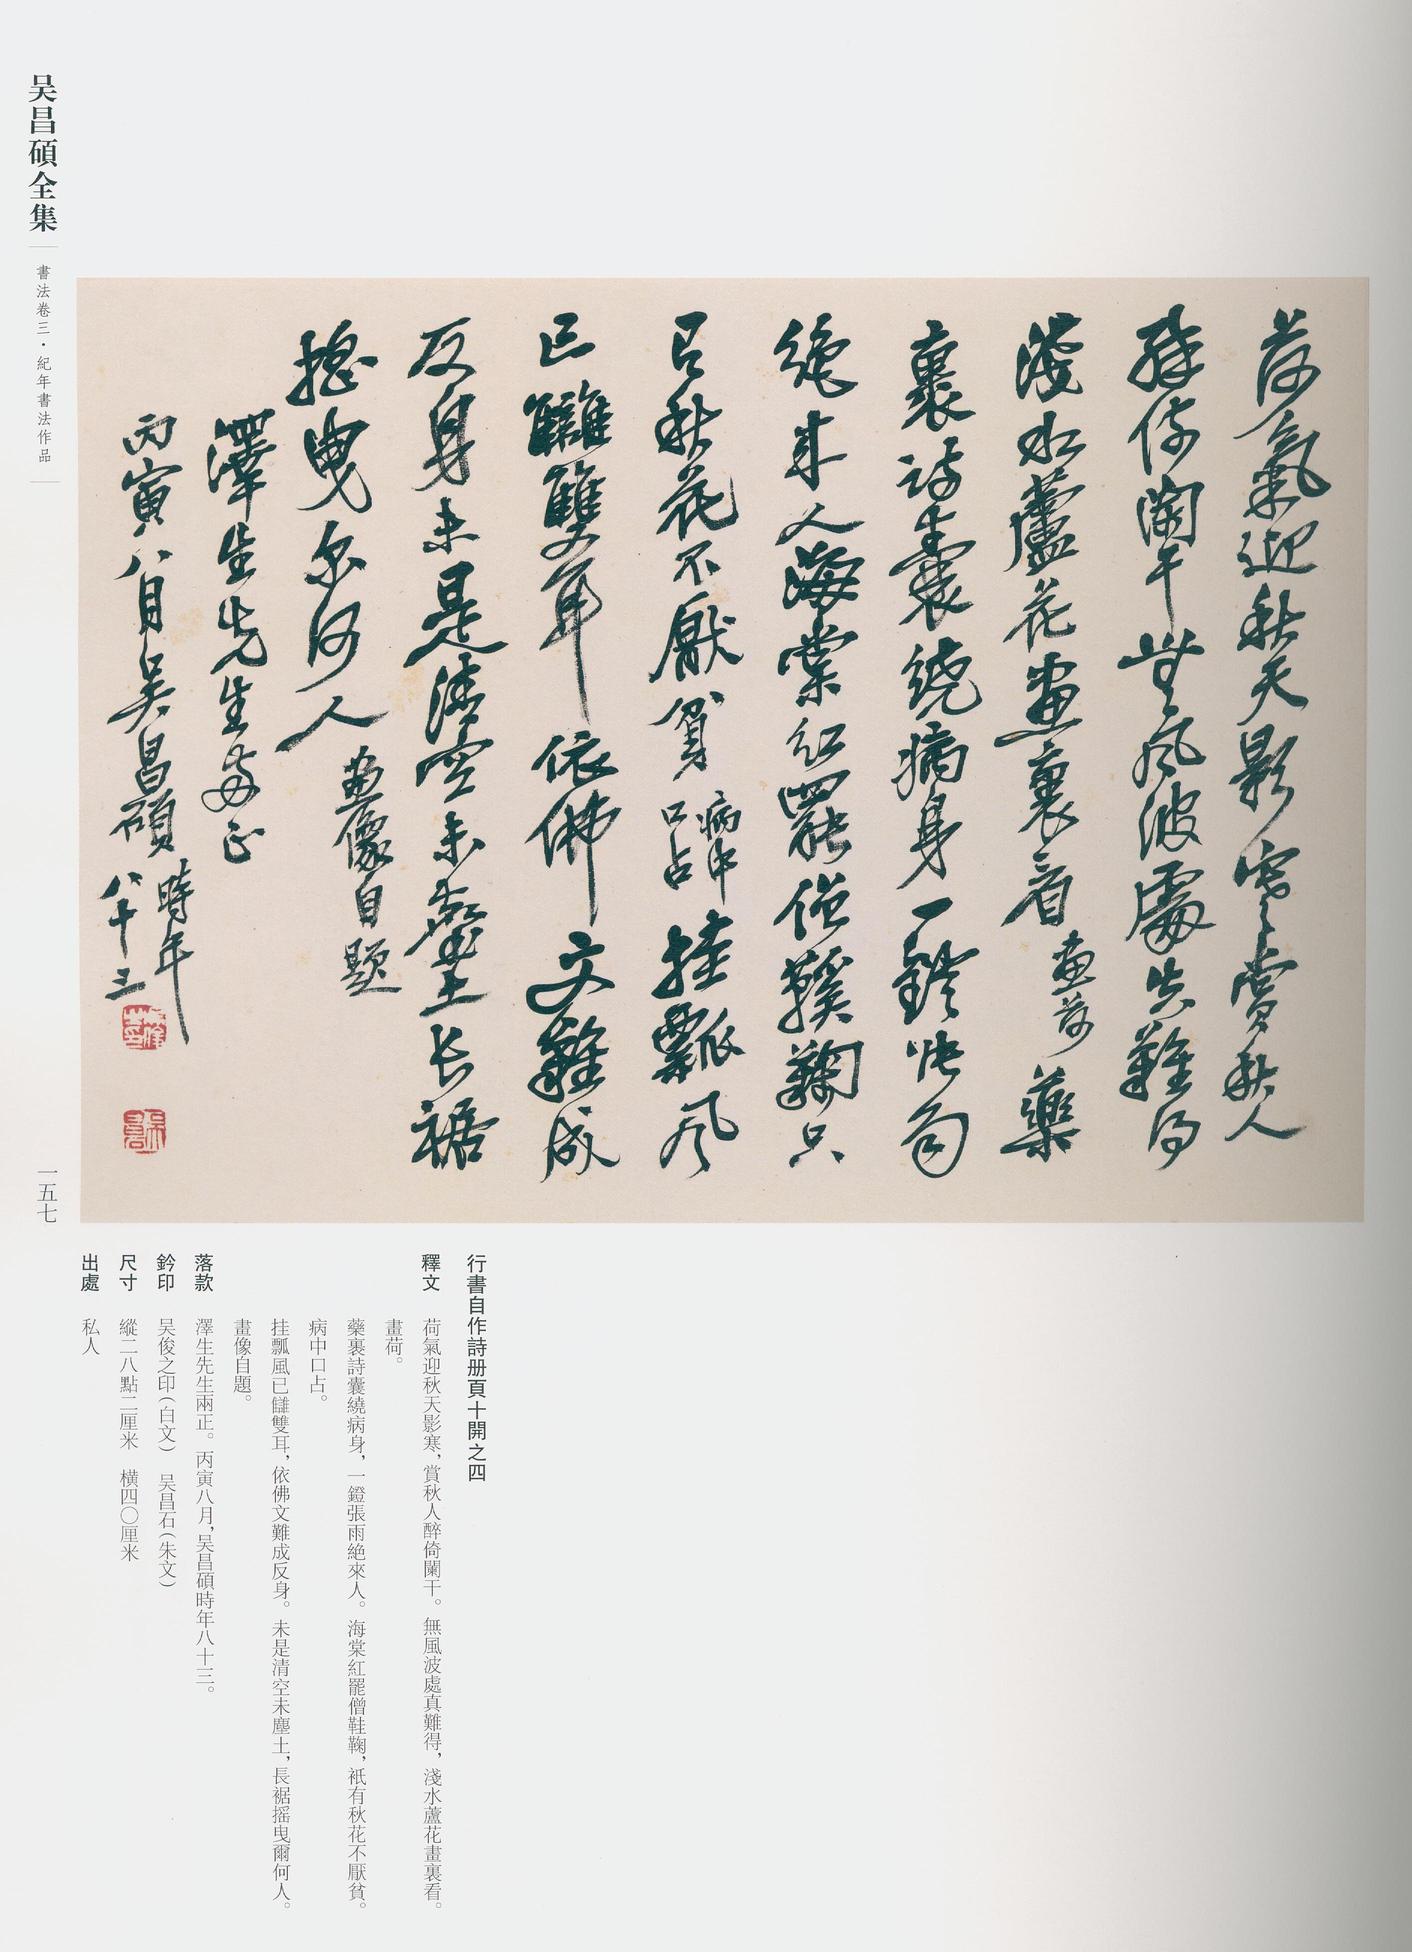 吴昌碩全集
書法卷三·紀年書法作品
荷氣迎秋天影寒賞秋人
醉倚闌干無風波處真難得
淺水蘆花畫裏看畫荷藥
裹詩囊繞病身一鐙張雨
絕來人海棠紅罷僧鞵鞠只
有秋花不厭貧病中口占挂瓢風
已讎雙耳依佛文難成
反身未是清空未塵土長裾
搖曳尔何人畫像自題
澤生先生兩正
丙寅八月吴昌碩時年八十三
一五七
行書自作詩册頁十開之四
釋文 荷氣迎秋天影寒，賞秋人醉倚闌干。無風波處真難得，淺水蘆花畫裏看。
畫荷。
藥裹詩囊繞病身，一鐙張雨絶來人。海棠紅罷僧鞋鞠，衹有秋花不厭貧。
病中口占。
挂瓢風已讎雙耳，依佛文難成反身。未是清空未塵土，長裾摇曳爾何人。
畫像自題。
落款 澤生先生兩正。丙寅八月，吴昌碩時年八十三。
鈐印 吴俊之印（白文） 吴昌石（朱文）
尺寸 縱二八點二厘米 橫四〇厘米
出處 私人